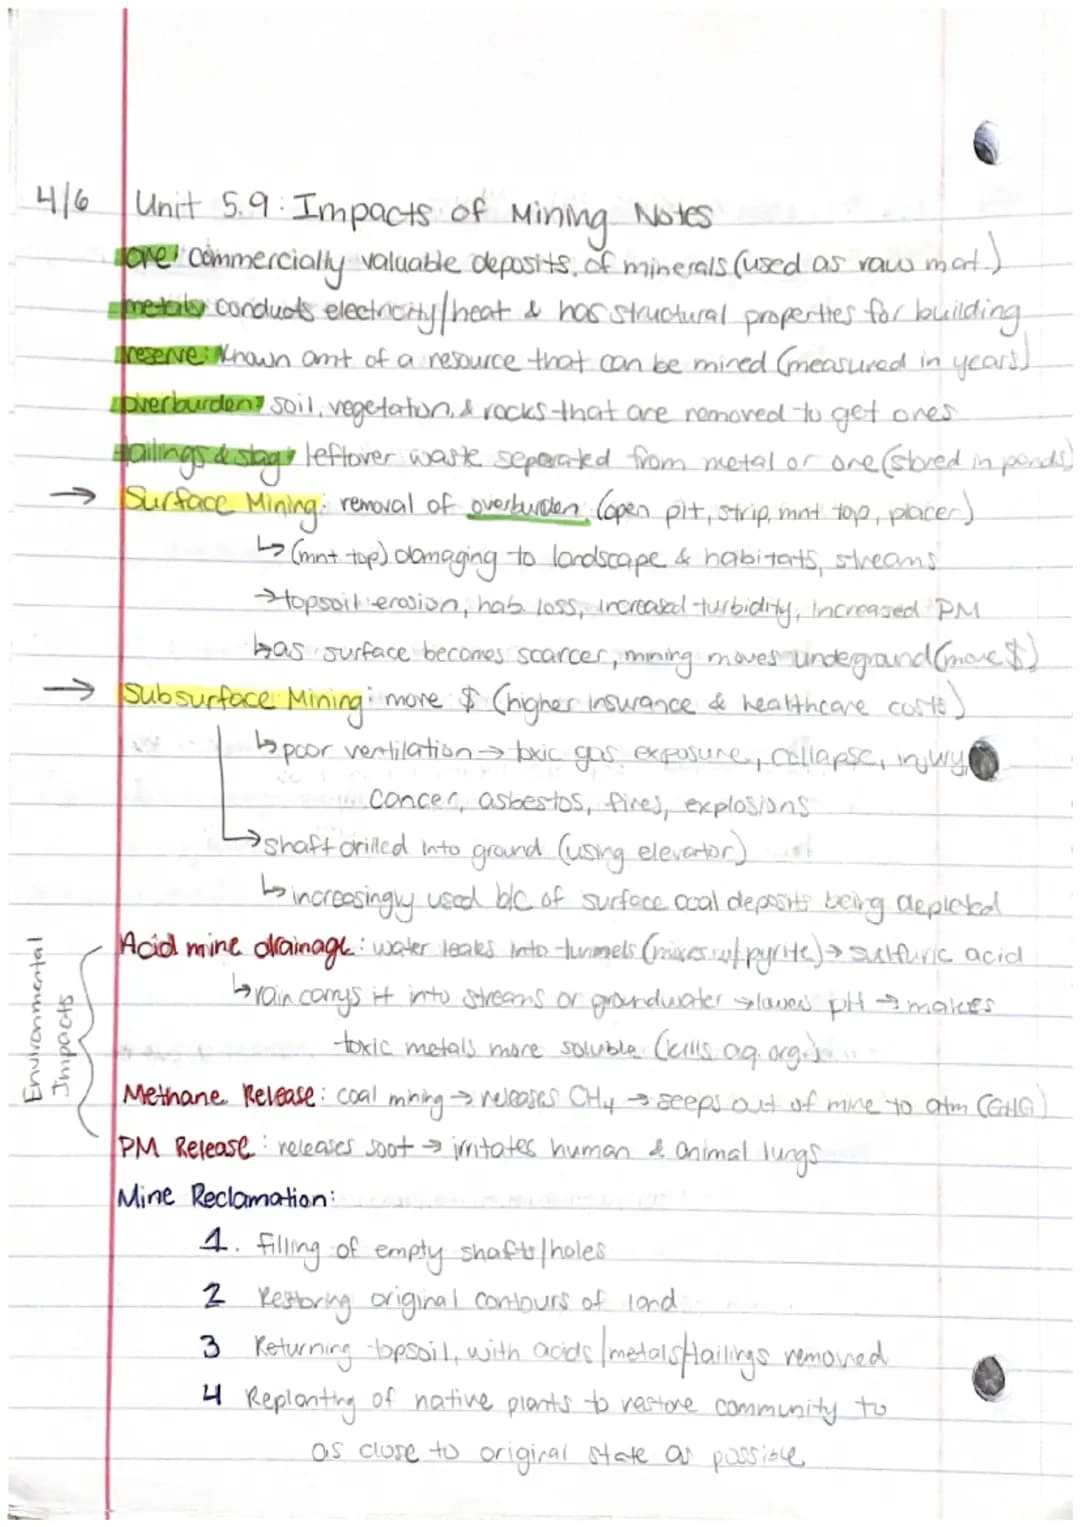 4/6 Unit 5.9: Impacts of Mining Notes
ore: commercially valuable deposits of minerals (used as raw mat.)
metals: conducts electricity/heat & has structural properties for building
reserve: Known amt of a resource that can be mined (measured in years)
overburden: soil, vegetation, & rocks that are removed to get ores
tailings & slag: leftover waste separated from metal or ore (stored in ponds)
→ Surface Mining: removal of overburden (open pit, strip, mnt top, placer)
↳ (mnt top) damaging to landscape & habitats, streams
→ topsoil erosion, hab. loss, increased turbidity, increased PM
↳ as surface becomes scarcer, mining moves undeground (more $)
→ Subsurface Mining: more $ (higher insurance & healthcare costs)
↳ poor ventilation → toxic gas exposure, collapse, injury,
cancer, asbestos, fires, explosions
↳ shaft drilled into ground (using elevator)
↳ increasingly used b/c of surface coal deposits being depleted
Environmental Impacts
Acid mine drainage: water leaks into tunnels (mixes w/ pyrite) → sulfuric acid
↳ rain carrys it into streams or groundwater → lowers pH → makes
toxic metals more soluble (kills aq. org.)
Methane Release: coal mining → releases CH4 → seeps out of mine to atm (GHG)
PM Release: releases soot → irritates human & animal lungs
Mine Reclamation:
1. filling of empty shafts/holes
2 Restoring original contours of land
3 Returning topsoil, with acids/metals/tailings removed
4 Replanting of native plants to restore community to
as close to original state as possible